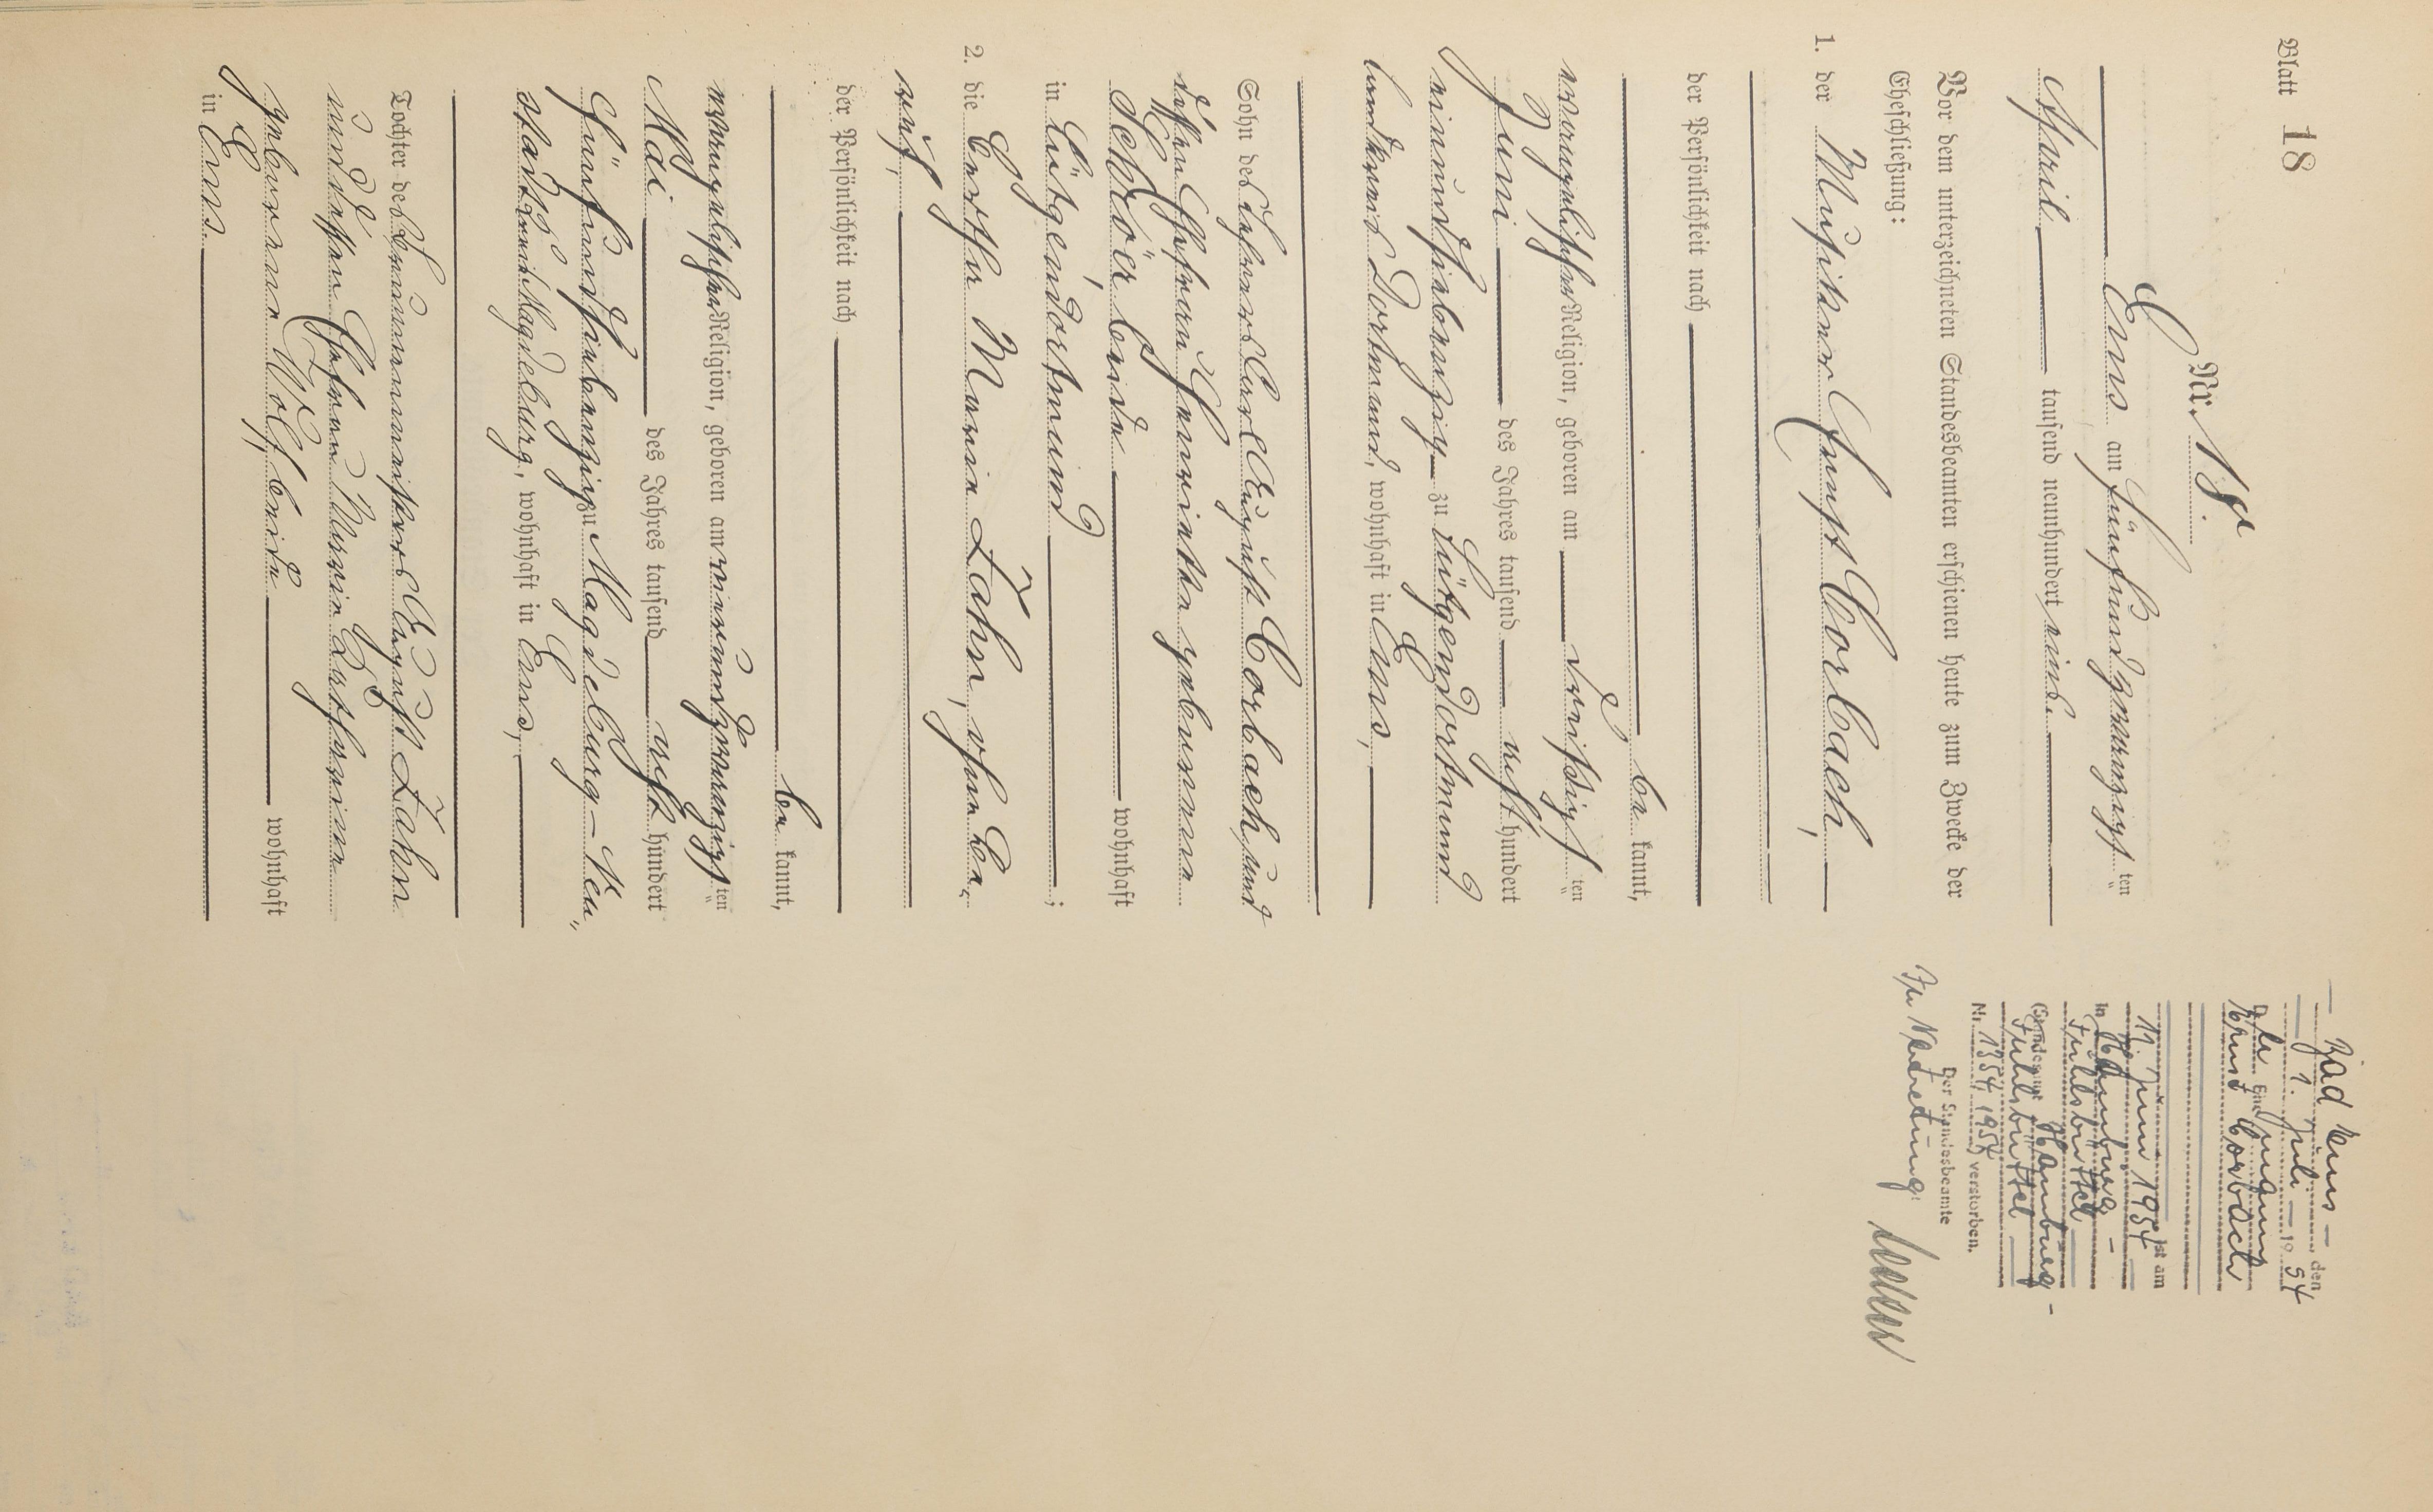 Blatt 18
Nr. 18.
Ems am fünfundzwanzigsten
April tausend neunhundert eins.
Vor dem unterzeichneten Standesbeamten erschienen heute zum Zwecke der
Eheschließung:
1. der Musiker Ernst Corbach,
der Persönlichkeit nach
be kannt,
evangelischer Religion, geboren am dreißigsten
Juni des Jahres tausend acht hundert
einundsiebenzig zu Lütgendortmund
Landkreis Dortmund, wohnhaft in Ems,
Sohn des Carl August Corbach, und
dessen Ehefrau Henriette geborenen
Schröer, beide wohnhaft
in Lütgendortmund;
2. die Bertha Marie Zahn, ohne Be-
ruf,
der Persönlichkeit nach
be kannt,
evangelischer Religion, geboren am einundzwanzigsten
Mai des Jahres tausend acht hundert
fünfundsiebenzig zu Magdeburg-Neu-
stadt, Magdeburg, wohnhaft in Ems,
Tochter des August Zahn
und dessen Ehefrau Marie Katharina
geborene Wolf, beide wohnhaft
in Ems.
Bad Ems den
1. Juli 1954
Ernst Corbach
ist am
11. Juni 1954
in Hamburg-
Fuhlsbüttel
Hamburg-
Fuhlsbüttel
Nr. 1354/1954) verstorben.
Der Standesbeamte
In Vertretung